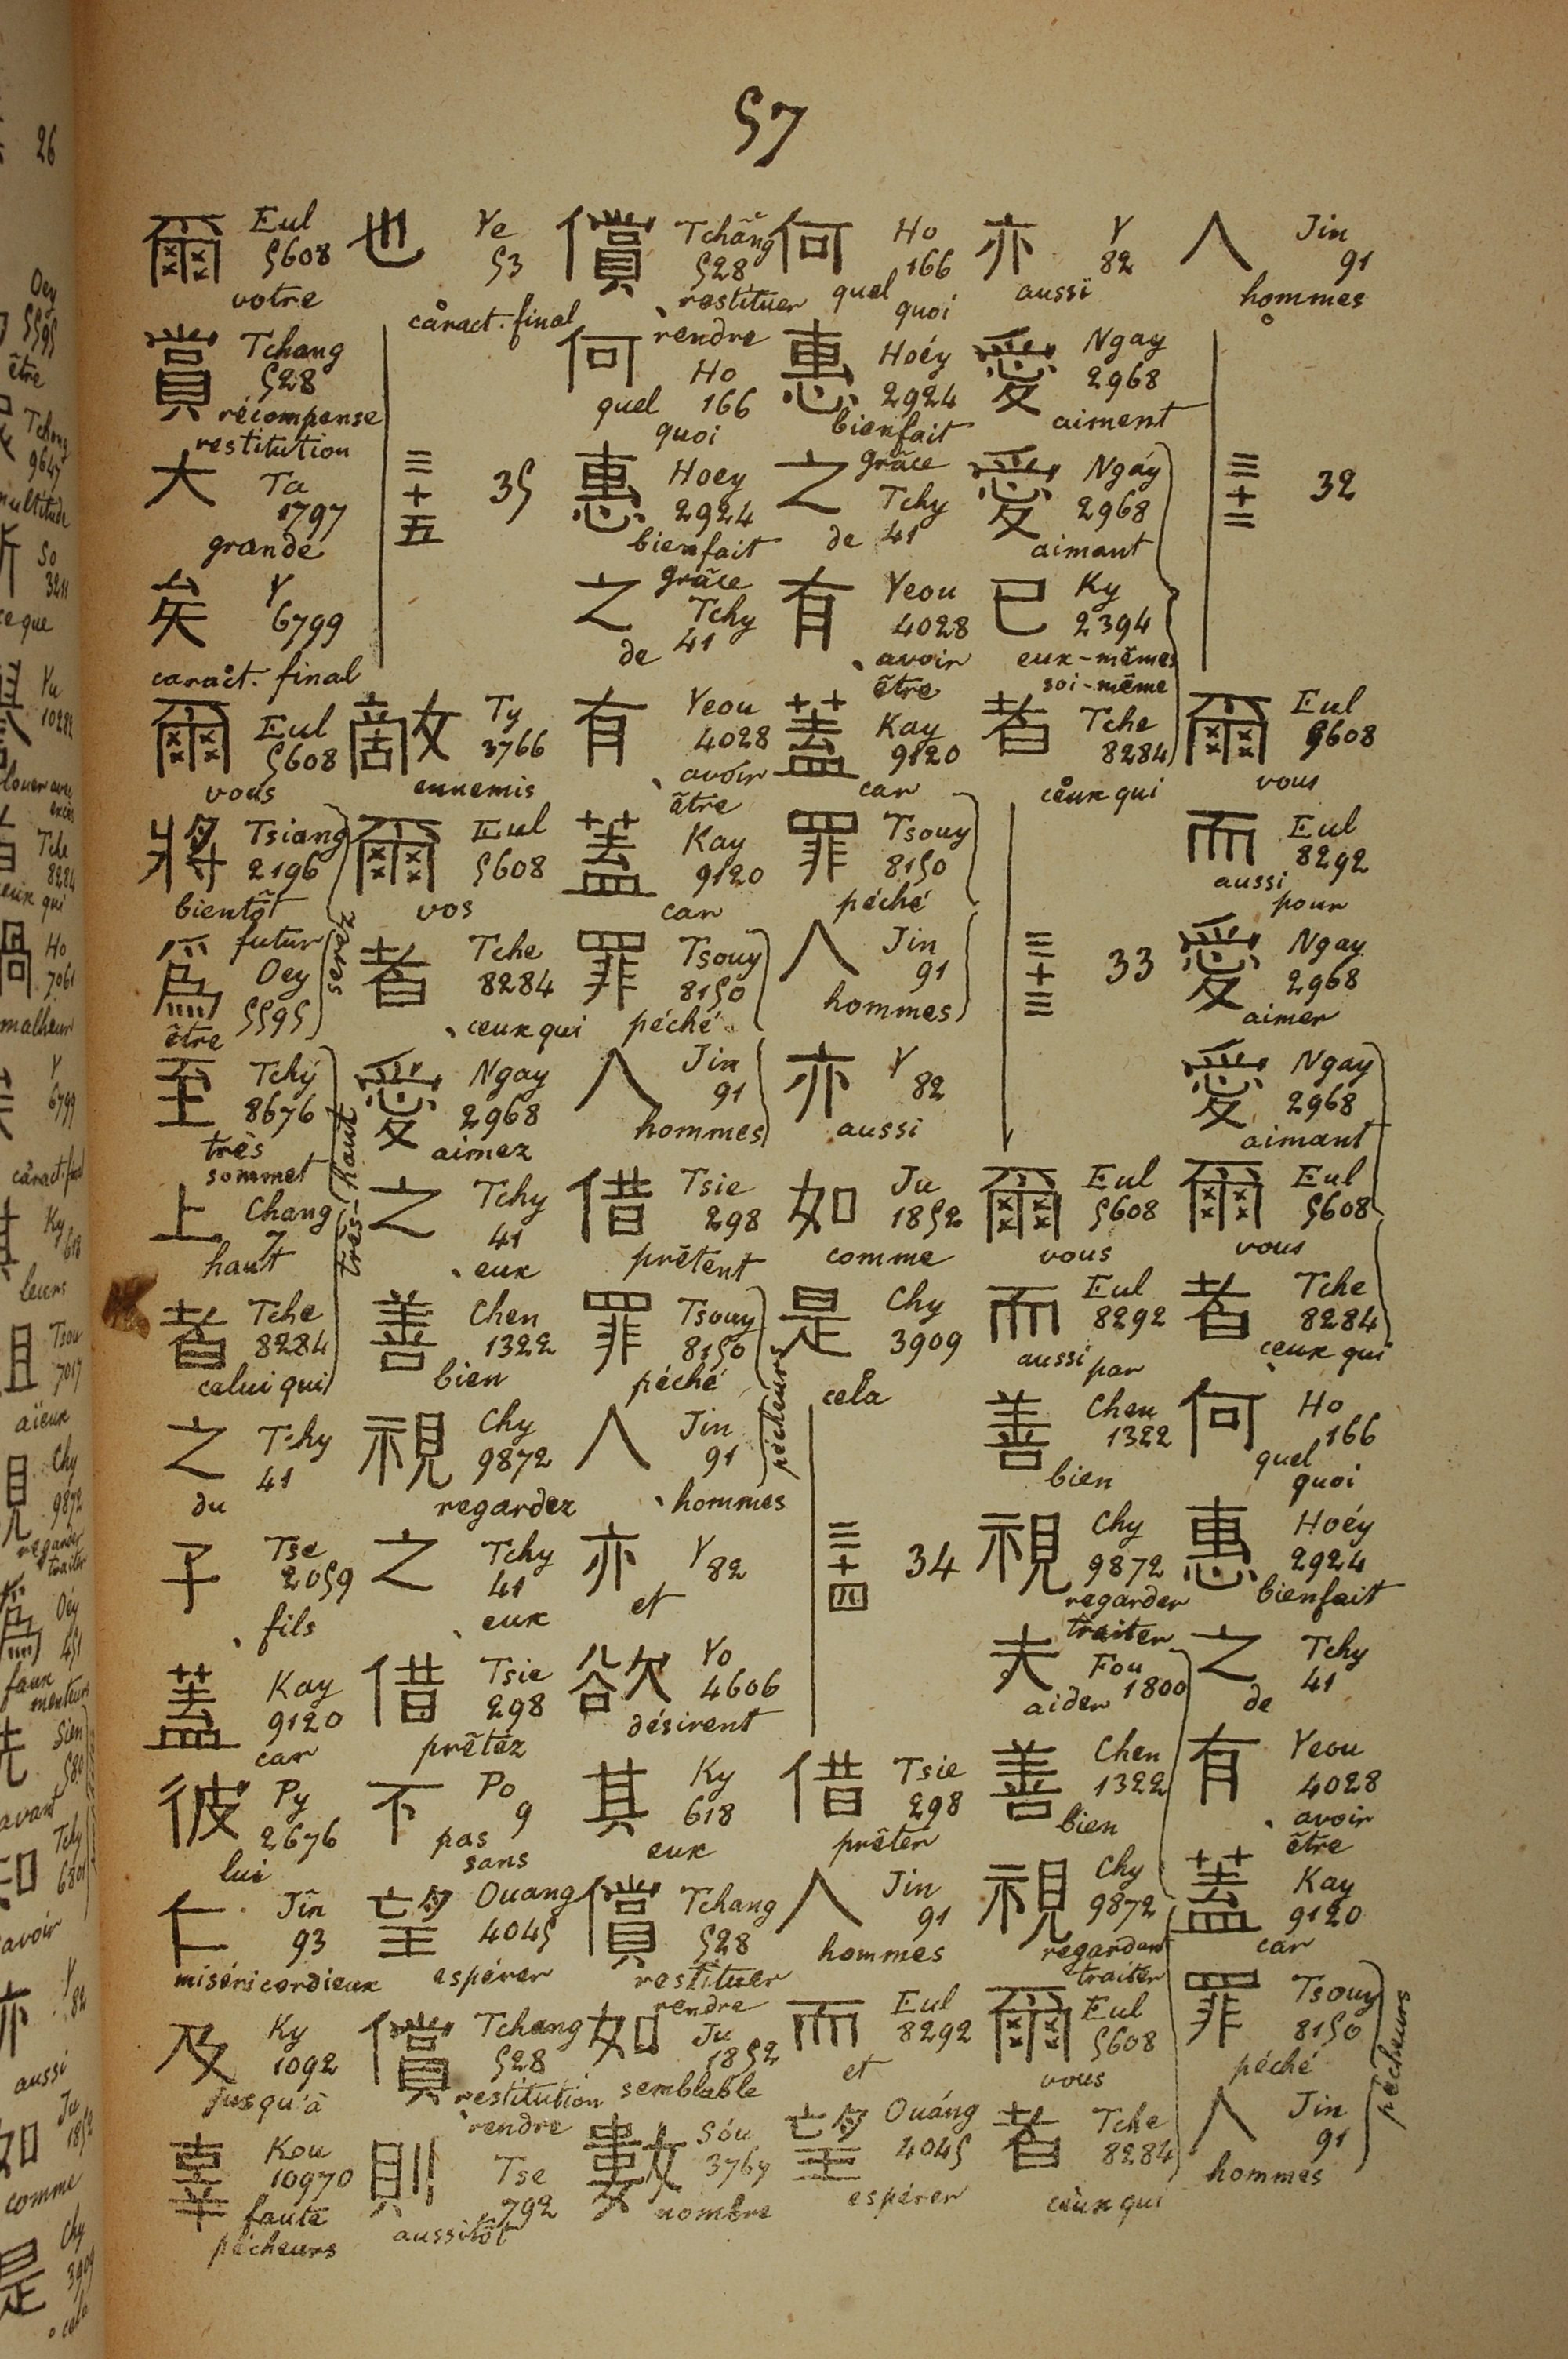 57
人 Jin
91
hommes
三十二 32
爾 Eul
5608
vous
而 Eul
8292
aussi
pour
愛 Ngay
2968
aimer
愛 Ngay
2968
aimant
爾 Eul
5608
vous
者 Tche
8284
ceux qui
何 Ho
166
quel
quoi
惠 Hoéy
2924
bienfait
之 Tchy
41
de
有 Yeou
4028
avoir
être
蓋 Kay
9120
car
罪 Tsouy
8150
péché
人 Jin
91
hommes
pécheurs
亦 Y
82
aussi
愛 Ngay
2968
aiment
愛 Ngáy
2968
aimant
已 Ky
2394
eux-mêmes
soi-même
者 Tche
8284
ceux qui
三十三 33
爾 Eul
5608
vous
而 Eul
8292
aussi par
善 Chen
1322
bien
視 Chy
9872
regarder
traiter
夫 Fou
1800
aider
善 Chen
1322
bien
視 Chy
9872
regardant
traiter
爾 Eul
5608
vous
者 Tche
8284
ceux qui
何 Ho
166
quel
quoi
惠 Hoéy
2924
bienfait
grâce
之 Tchy
41
de
有 Yeou
4028
avoir
être
蓋 Kay
9120
car
罪 Tsouy
8150
péché
人 Jin
91
hommes
亦 Y
82
aussi
如 Ju
1852
comme
是 Chy
3909
cela
三十四 34
借 Tsie
298
prêter
人 Jin
91
hommes
而 Eul
8292
et
望 Ouáng
4045
espérer
償 Tchãng
528
restituer
rendre
何 Ho
166
quel
quoi
惠 Hoey
2924
bienfait
grâce
之 Tchy
41
de
有 Yeou
4028
avoir
être
蓋 Kay
9120
car
罪 Tsouy
8150
péché
人 Jin
91
hommes
借 Tsie
298
prêtent
罪 Tsouy
8150
péché
人 Jin
91
hommes
pécheurs
亦 Y
82
et
欲 Yo
4606
désirent
其 Ky
618
eux
償 Tchang
528
restituer
rendre
如 Ju
1852
semblable
數 Sóu
3764
nombre
也 Ye
53
caract. final
三十五 35
敵 Ty
3766
ennemis
爾 Eul
5608
vos
者 Tche
8284
ceux qui
愛 Ngay
2968
aimez
之 Tchy
41
eux
善 Chen
1322
bien
視 Chy
9872
regardez
之 Tchy
41
eux
借 Tsie
298
prêtez
不 Po
9
pas
sans
望 Ouang
4045
espérer
償 Tchang
528
restitution
rendre
則 Tse
792
aussitôt
爾 Eul
5608
votre
賞 Tchang
528
récompense
restitution
大 Ta
1797
grande
矣 Y
6799
caract. final
爾 Eul
5608
vous
將 Tsiang
2196
bientôt
futur
為 Oey
5595
être
serez
至 Tchý
8676
très
sommet
上 Chang
7
haut
très-haut
者 Tche
8284
celui qui
之 Tchy
41
du
子 Tse
2059
fils
蓋 Kay
9120
car
彼 Py
2676
lui
仁 Jîn
93
miséricordieux
及 Ky
1092
jusqu'à
辜 Kou
10970
faute
pécheurs